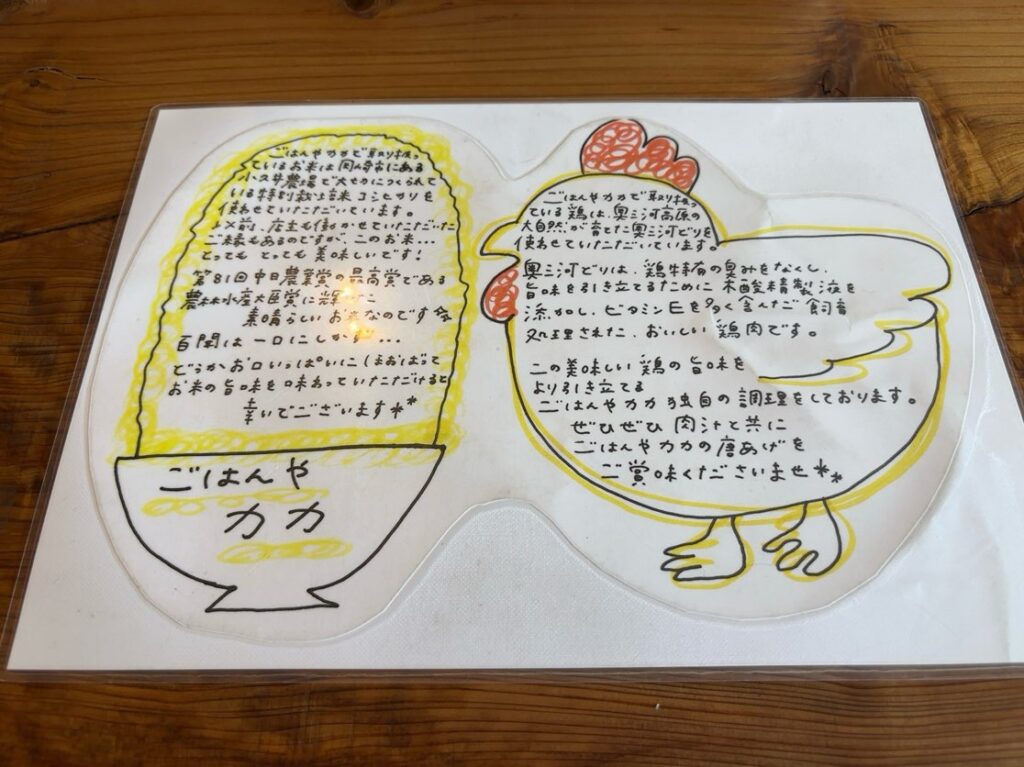 ごはんやカカで取り扱っ
ているお米は岡崎市にある
小久井農場で大切につくられて
いる特別栽培米コシヒカリを
使わせていただいています。
以前、店主も働かせていただいた
ご縁もあるのですが、このお米...
とっても とっても美味しいです!
第81回中日農業賞の最高賞である
農林水産大臣賞に輝いた
素晴らしいお米なのです
百聞は一口にしかず...
どうかお口いっぱいにほおばって
お米の旨味を味わっていただけると
幸いでございます**
ごはんや
カカ
ごはんやカカで取り扱っ
ている鶏は、奥三河高原の
大自然が育てた奥三河どりを
使わせていただいています。
奥三河どりは、鶏特有の臭みをなくし、
旨味を引き立てるために木酸精製液を
添加し、ビタミンEを多く含んだ飼育
処理された、おいしい鶏肉です。
この美味しい鶏の旨味を
より引き立てる
ごはんやカカ独自の調理をしております。
ぜひぜひ 肉汁と共に
ごはんやカカの唐あげを
ご賞味くださいませ**